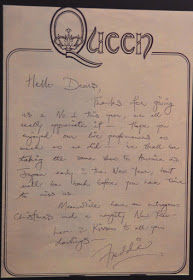 Queen
Hello Dears,
Thanks for giving
us a No 1 this year, we all
really appreciate it - Hope you
enjoyed our live performances as
much as we did - we shall be
taking the same show to America and
Japan early in the New Year, but
will be back before you have time
to miss us.
Meanwhile have an outrageous
Christmas and a naughty New Year
Love & Kisses to all you
darlings -
Freddie